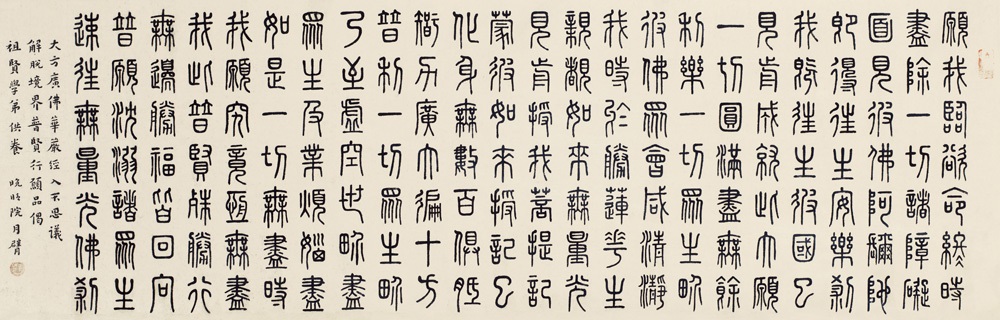 願我臨欲命終時
盡除一切諸障礙
面見彼佛阿彌陀
即得往生安樂剎
我既往生彼國已
見前成就此大願
一切圓滿盡無餘
利樂一切眾生畍
彼佛眾會咸清瀞
我時於勝蓮華生
親覩如來無量光
見前授我菩提記
蒙彼如來授記已
化身無數百俱胝
智力廣大徧十方
普利一切眾生畍
乃至虛空世畍盡
眾生及業煩惱盡
如是一切無盡時
我願究竟恆無盡
我此普賢殊勝行
無邊勝福皆回向
普願沈溺諸眾生
速往無量光佛剎
大方廣佛華嚴經入不思議
解脫境界普賢行願品偈
祖賢學弟供養 晚晴院月臂